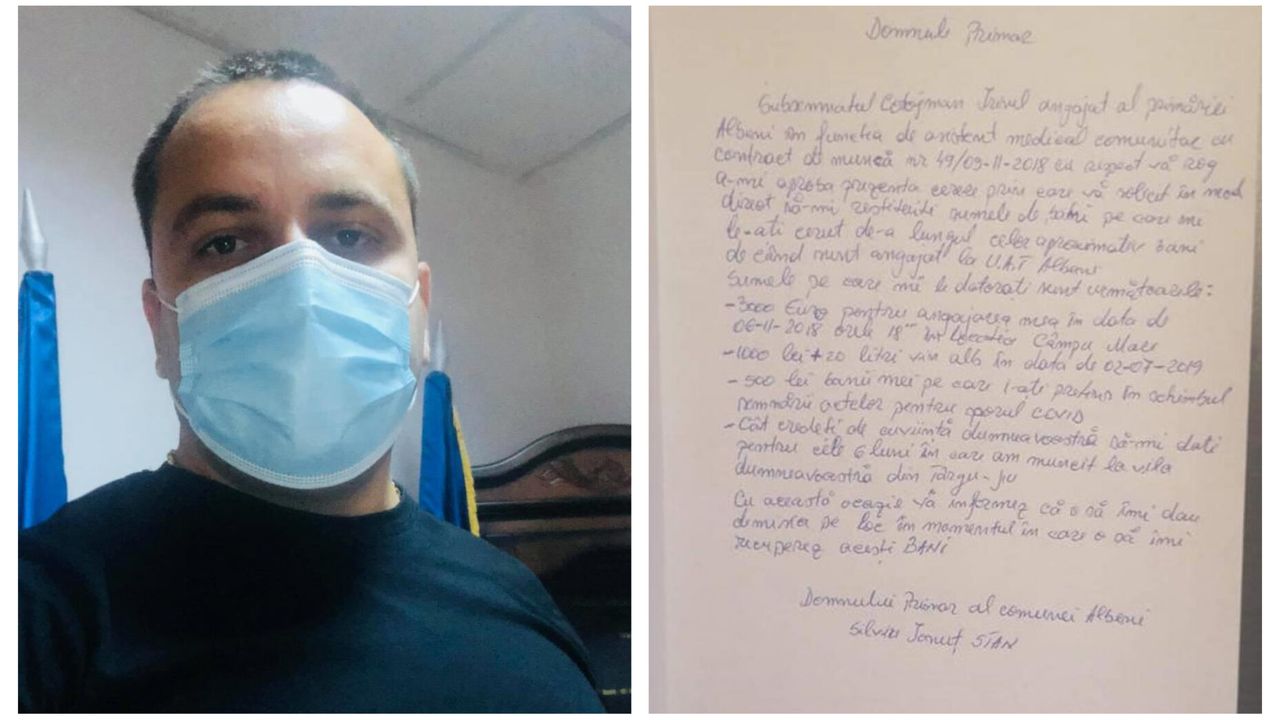 Domnule Primar
Subsemnatul Irinel angajat al primăriei
Albeni în funcția de asistent medical comunitar cu
contract de muncă nr 49/09-11-2018 cu respect vă rog
a-mi aproba prezenta cerere prin care vă solicit în mod
direct să-mi restituiți sumele de bani pe care mi
le-ați cerut de-a lungul celor aproximativ 3 ani
de când sunt angajat la U.A.T Albeni
Sumele pe care mi le datorați sunt următoarele:
-3000 Euro pentru angajarea mea în data de
06-11-2018 orele 18 în Câmpu Mare
-1000 lei + 20 litri vin alb în data de 02-07-2019
-500 lei banii mei pe care i-ați pretins în schimbul
semnării actelor pentru sporul COVID
-Cât credeți de cuviință dumneavoastră să-mi dați
pentru cele 6 luni în care am muncit la vila
dumneavoastră din Târgu-Jiu
Cu această ocazie vă informez că o să îmi dau
demisia pe loc în momentul în care o să îmi
recuperez acești BANI
Domnului Primar al comunei Albeni
Silviu Ionuț STAN